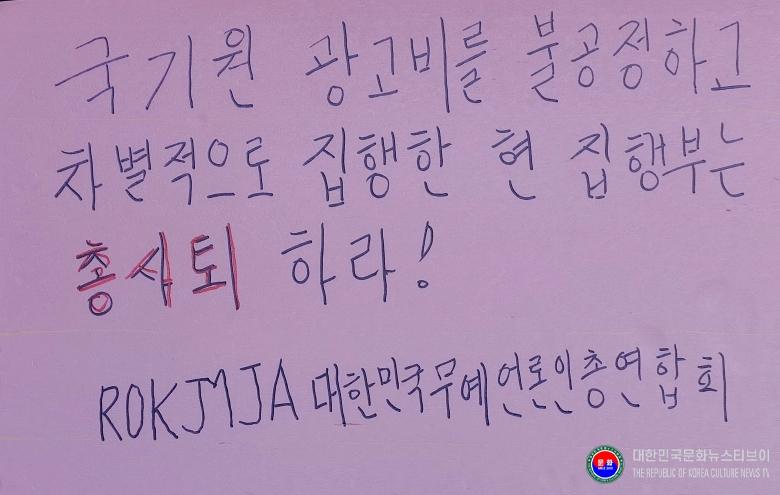 국기원 광고비를 불공정하고
차별적으로 집행한 현 집행부는
총사퇴 하라!
ROKJMJA 대한민국무예언론인총연합회
문화
대한민국문화뉴스티브이
THE REPUBLIC OF KOREA CULTURE NEWS TV